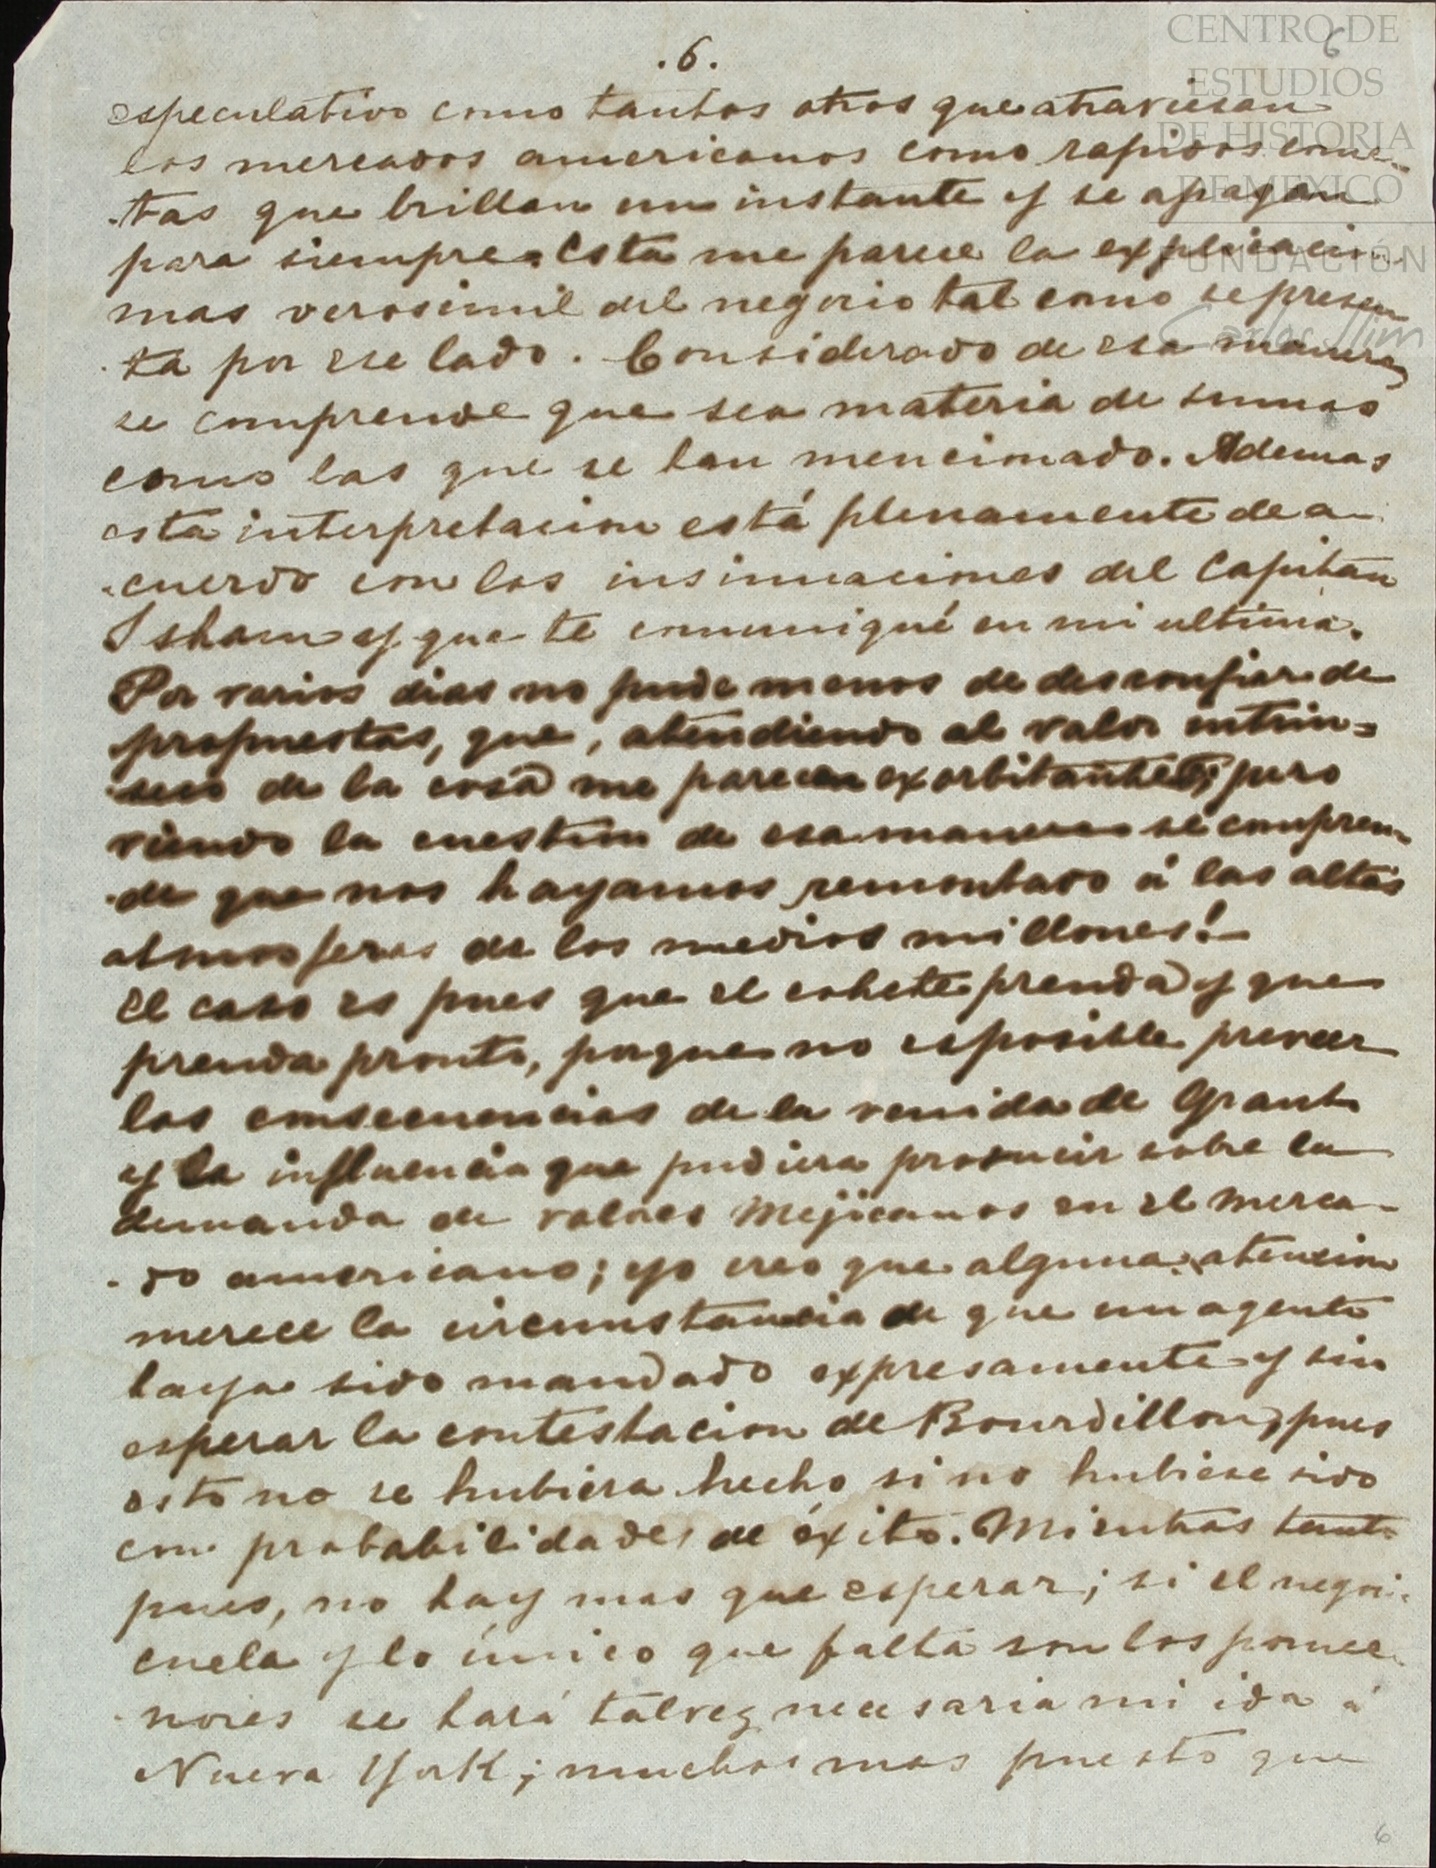 .6.
6
CENTRO DE
ESTUDIOS
DE HISTORIA
DE MEXICO
FUNDACIÓN
Carlos Slim
especulativo como tantos otros que atraviesan
los mercados americanos como rapidos come-
-tas que brillan un instante y se apagan
para siempre. Esta me parece la explicacion
mas verosimil del negocio tal como se presen
-ta por ese lado. Considerado de esa manera
se comprende que sea materia de sumas
como las que se han mencionado. Ademas
esta interpretacion está plenamente de a-
-cuerdo con las insinuaciones del Capitan
Isham y que te comuniqué en mi ultima.
Por varios dias no pude menos de desconfiar de
propuestas, que, atendiendo al valor intrin-
-seco de la cosa me parecen exorbitantes; pero
viendo la cuestion de esa manera se compren-
-de que nos hayamos remontado á las altas
atmosferas de los medios millones!
El caso es pues que el cohete prenda y que
prenda pronto, porque no es posible preveer
las consecuencias de la venida de Grant
y la influencia que pudiera producir sobre la
demanda de valores Mejicanos en el merca-
-do americano; yo creo que alguna atencion
merece la circunstancia de que un agente
haya sido mandado expresamente y sin
esperar la contestacion de Bourdillon, pues
esto no se hubiera hecho si no hubiese sido
con probabilidades de éxito. Mientras tanto
pues, no hay mas que esperar; si el negocio
cuela y lo único que falta son los pormee-
-nores se hará talvez necesaria mi ida á
Nueva York; mucho mas puesto que
6